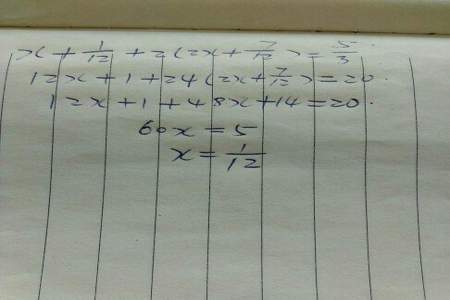 x + 1/12 + 2(2x + 7/12) = 5/3
12x + 1 + 24(2x + 7/12) = 20
12x + 1 + 48x + 14 = 20
60x = 5
x = 1/12